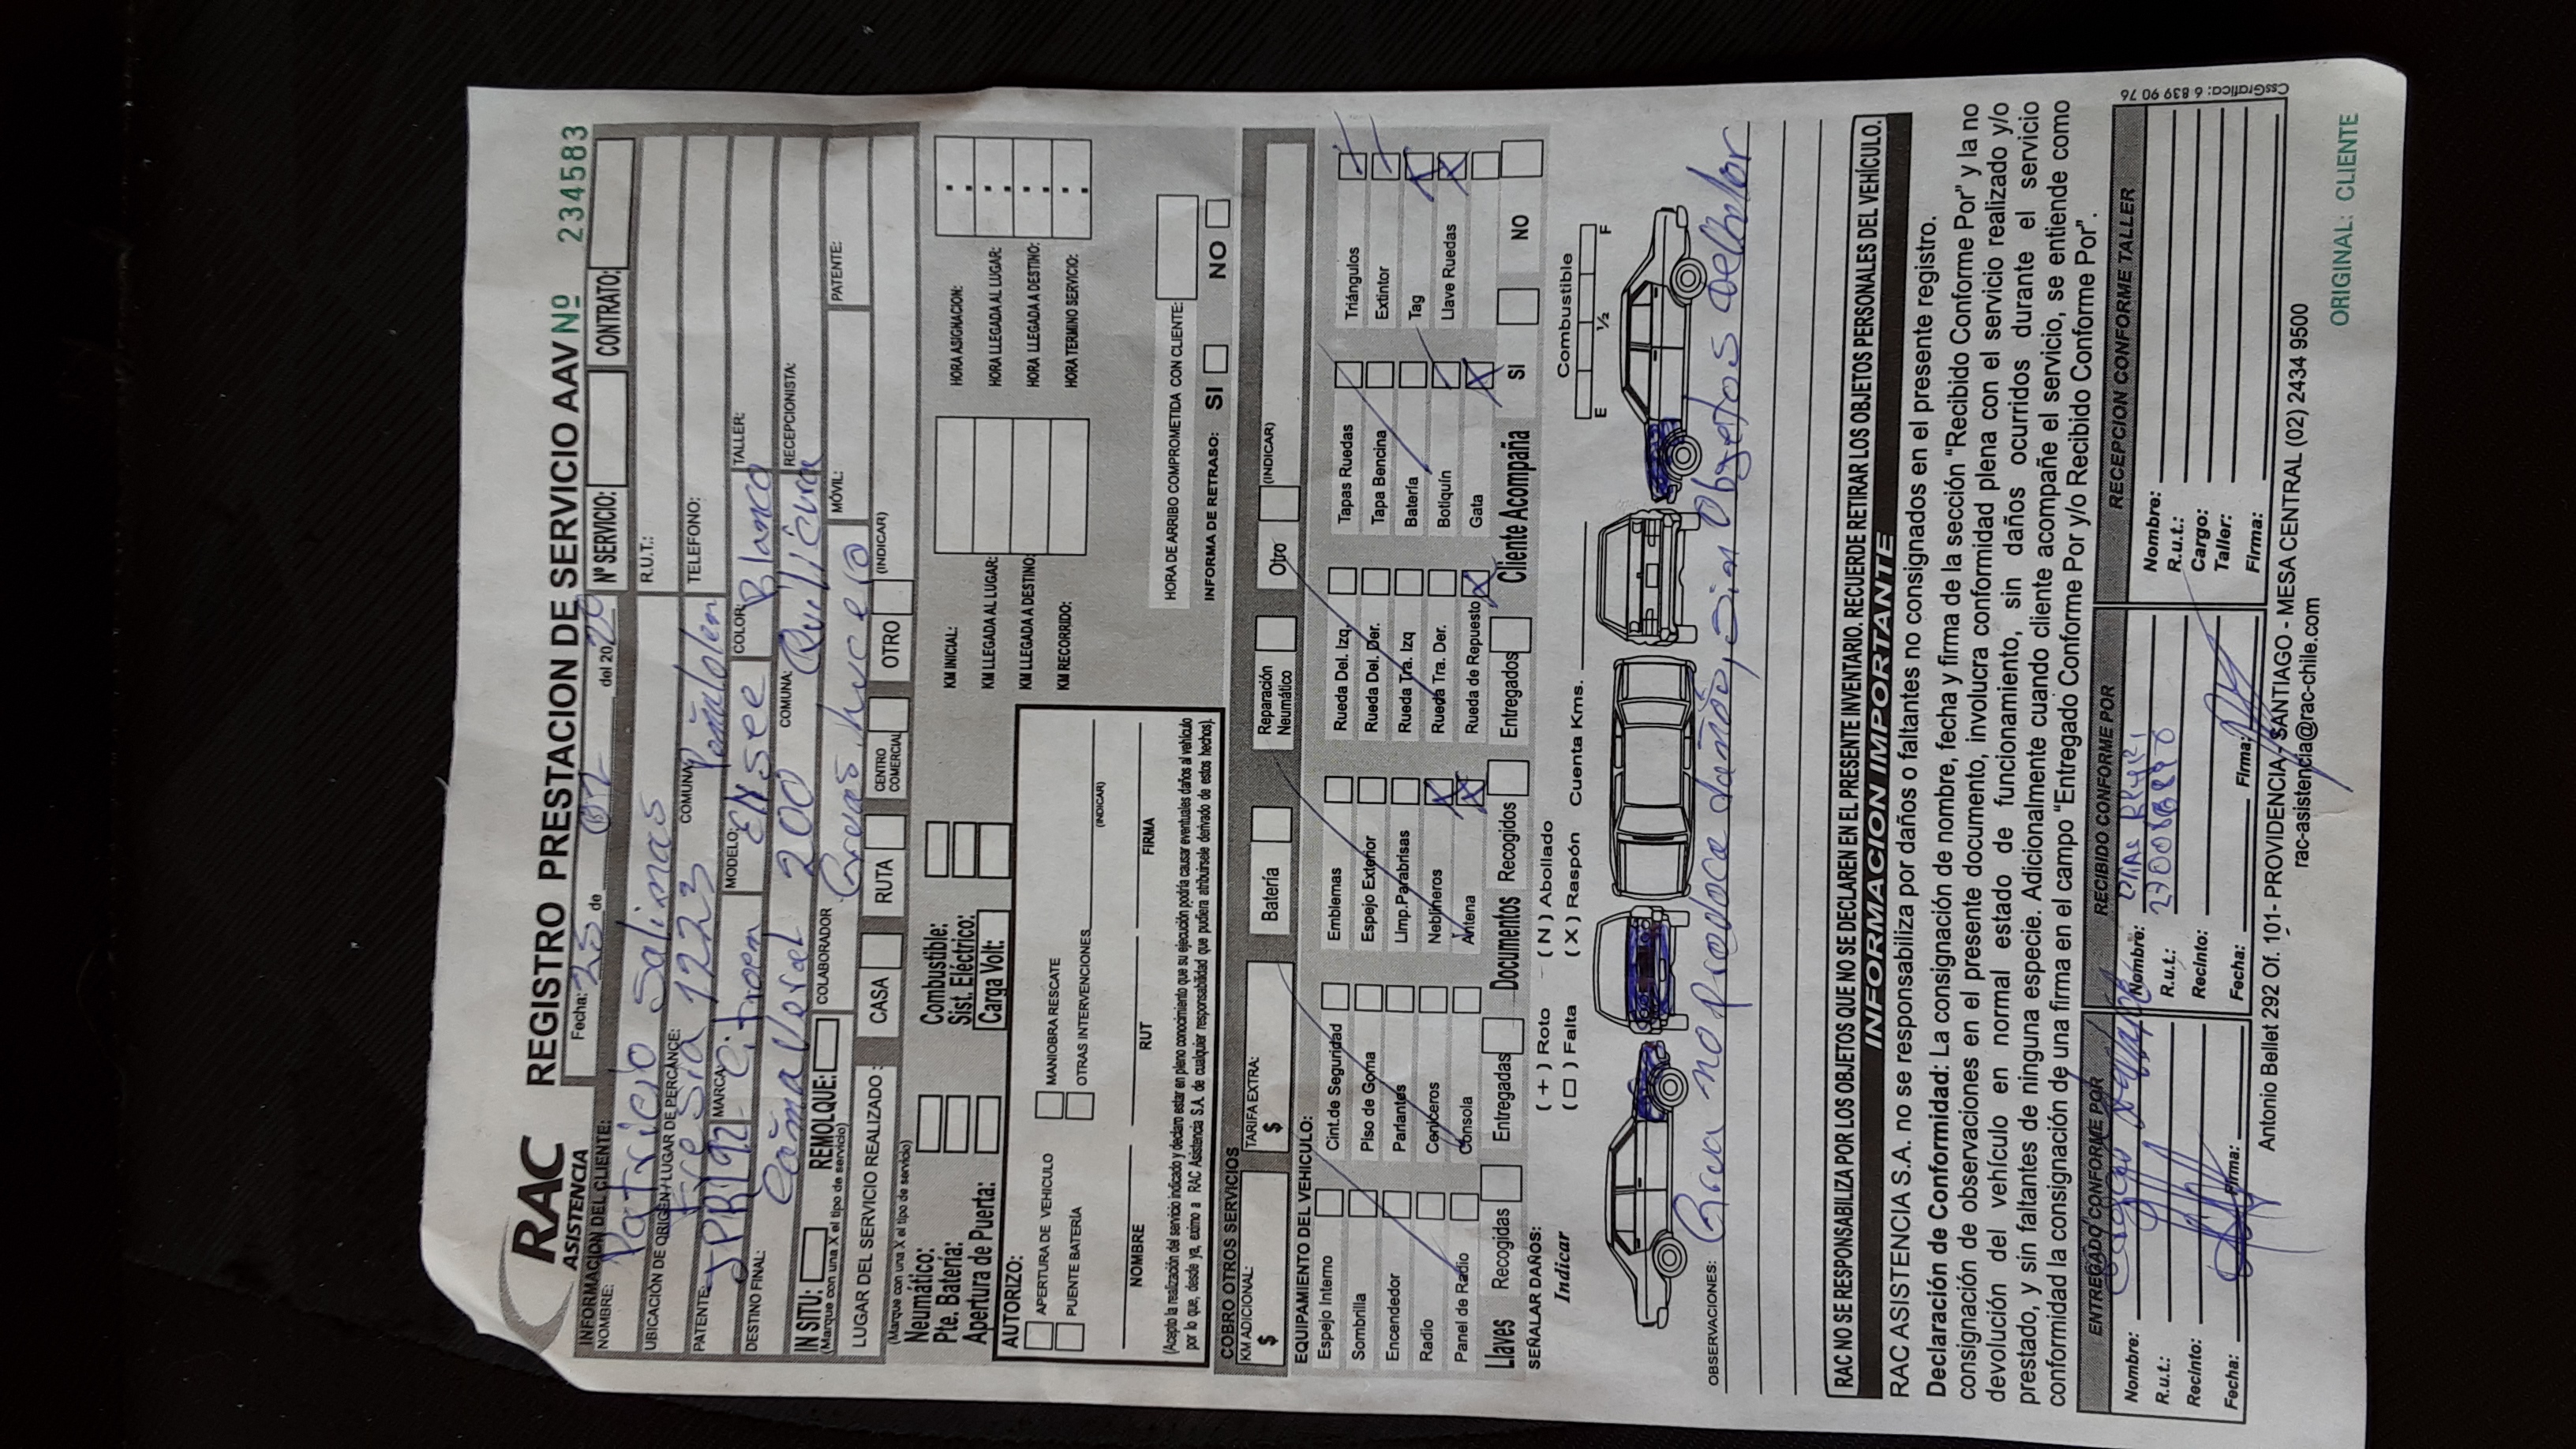 RAC
ASISTENCIA
REGISTRO PRESTACION DE SERVICIO AAV Nº 234583
INFORMACION DEL CLIENTE: Fecha: 25 de 02 del 2020 Nº SERVICIO: CONTRATO:
NOMBRE: Patricio Salinas R.U.T.:
UBICACIÓN DE ORIGEN / LUGAR DE PERCANCE: Fresia 1223 COMUNA: Peñalolen TELEFONO:
PATENTE: JPRT92 MARCA: Citroen MODELO: COLOR: Blanco TALLER:
DESTINO FINAL: Cañaveral 200 COMUNA: Quilicura RECEPCIONISTA:
IN SITU: REMOLQUE: COLABORADOR Gruas MÓVIL: PATENTE:
(Marque con una X el tipo de servicio)
LUGAR DEL SERVICIO REALIZADO: CASA RUTA CENTRO COMERCIAL OTRO (INDICAR)
(Marque con una X el tipo de servicio)
Neumático: Combustible:
Pte. Batería: Sist. Eléctrico:
Apertura de Puerta: Carga Volt:
KM INICIAL: HORA ASIGNACION:
KM LLEGADA AL LUGAR: HORA LLEGADA AL LUGAR:
KM LLEGADA A DESTINO: HORA LLEGADA A DESTINO:
KM RECORRIDO: HORA TERMINO SERVICIO:
AUTORIZO:
APERTURA DE VEHICULO MANIOBRA RESCATE
PUENTE BATERÍA OTRAS INTERVENCIONES (INDICAR)
NOMBRE RUT FIRMA
(Acepto la realización del servicio indicado y declaro estar en pleno conocimiento que su ejecución podría causar eventuales daños al vehículo
por lo que, desde ya, eximo a RAC Asistencia S.A. de cualquier responsabilidad que pudiera atribuírsele derivado de estos hechos).
HORA DE ARRIBO COMPROMETIDA CON CLIENTE:
INFORMA DE RETRASO: SI NO
COBRO OTROS SERVICIOS
KM ADICIONAL: $ TARIFA EXTRA: $ Batería Reparación Neumático Otro (INDICAR)
EQUIPAMIENTO DEL VEHICULO:
Espejo Interno Cint.de Seguridad Emblemas Rueda Del. Izq. Tapas Ruedas Triángulos
Sombrilla Piso de Goma Espejo Exterior Rueda Del. Der. Tapa Bencina Extintor
Encendedor Parlantes Limp.Parabrisas Rueda Tra. Izq Batería Tag
Radio Ceniceros Neblineros Rueda Tra. Der. Botiquín Llave Ruedas
Panel de Radio Consola Antena Rueda de Repuesto Gata
Llaves Recogidas Entregadas Documentos Recogidos Entregados Cliente Acompaña SI NO
SEÑALAR DAÑOS: ( + ) Roto ( N ) Abollado
Indicar ( □ ) Falta ( X ) Raspón Cuenta Kms. Combustible
E ½ F
OBSERVACIONES: Grua no produce daño, sin Objetos de Valor
RAC NO SE RESPONSABILIZA POR LOS OBJETOS QUE NO SE DECLAREN EN EL PRESENTE INVENTARIO. RECUERDE RETIRAR LOS OBJETOS PERSONALES DEL VEHÍCULO.
INFORMACION IMPORTANTE
RAC ASISTENCIA S.A. no se responsabiliza por daños o faltantes no consignados en el presente registro.
Declaración de Conformidad: La consignación de nombre, fecha y firma de la sección "Recibido Conforme Por" y la no
consignación de observaciones en el presente documento, involucra conformidad plena con el servicio realizado y/o
devolución del vehículo en normal estado de funcionamiento, sin daños ocurridos durante el servicio
prestado, y sin faltantes de ninguna especie. Adicionalmente cuando cliente acompañe el servicio, se entiende como
conformidad la consignación de una firma en el campo "Entregado Conforme Por y/o Recibido Conforme Por".
ENTREGADO CONFORME POR RECIBIDO CONFORME POR RECEPCION CONFORME TALLER
Nombre: Nombre: Nombre:
R.u.t.: R.u.t.: R.u.t.:
Recinto: Recinto: Cargo:
Taller:
Fecha: Firma: Fecha: Firma: Firma:
Antonio Bellet 292 Of. 101- PROVIDENCIA - SANTIAGO - MESA CENTRAL (02) 2434 9500
rac-asistencia@rac-chile.com
ORIGINAL: CLIENTE
CssGrafica: 6 839 90 76